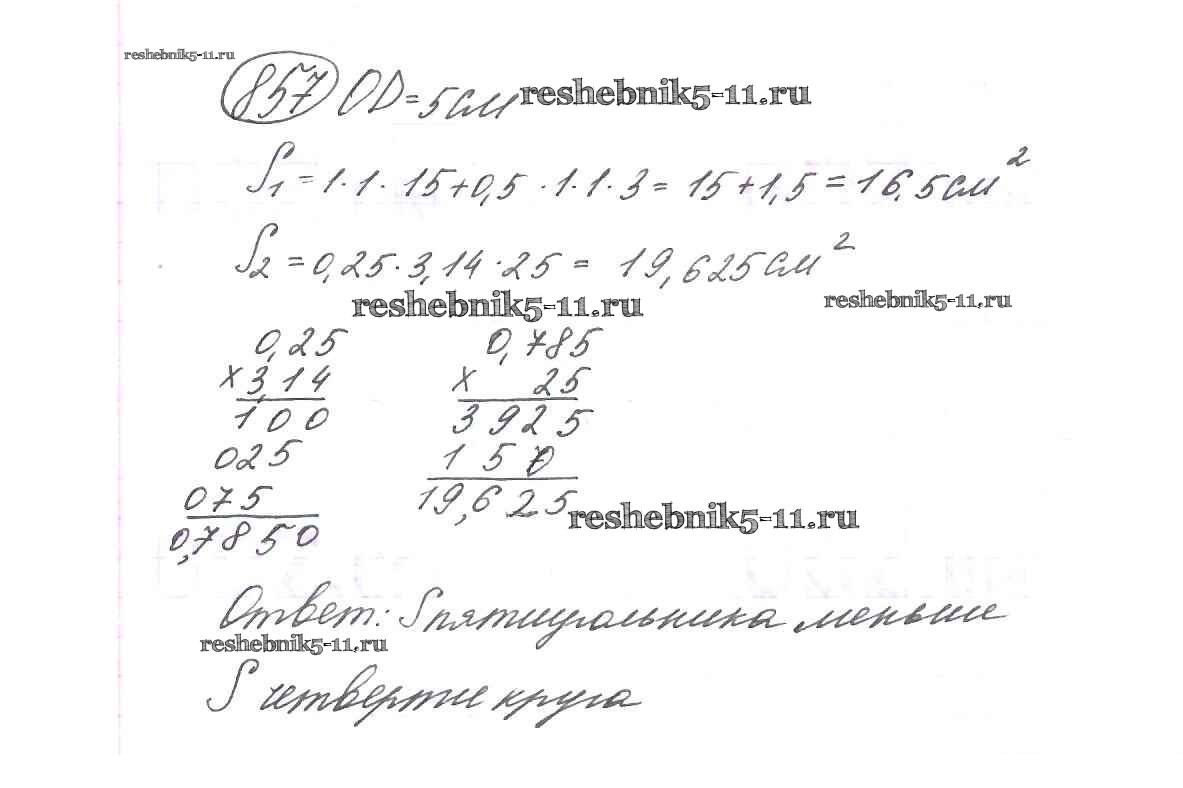 reshebnik5-11.ru
857 OD=5см reshebnik5-11.ru
S₁=1·1·15+0,5·1·1·3=15+1,5=16,5см²
S₂=0,25·3,14·25=19,625см²
reshebnik5-11.ru reshebnik5-11.ru
0,25
×3,14
100
025
075
0,7850
0,785
× 25
3925
1570
19,625
reshebnik5-11.ru
Ответ: S пятиугольника меньше
reshebnik5-11.ru
S четверти круга